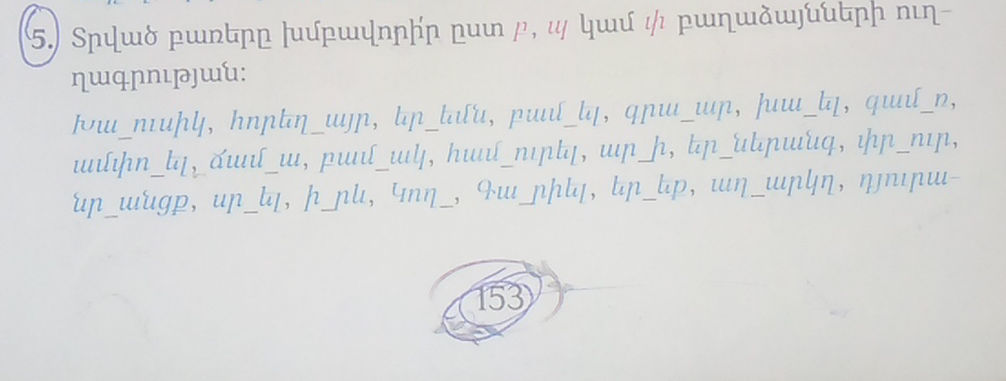 5. Տրված բառերը խմբավորի՛ր ըստ բ, պ կամ փ բաղաձայնների ուղ-
ղագրության:
Խա_ուսիկ, հորեղ_այր, եր_եմն, բամ_ել, գրա_ար, խա_ել, գամ_ռ,
ամփո_ել, ճամ_ա, բամ_ակ, համ_ուրել, ար_ի, եր_ներանգ, փր_ուր,
նր_անցք, սր_ել, ի_րև, Կող_, Գա_րիել, եր_եք, աղ_արկղ, դյուրա-
153